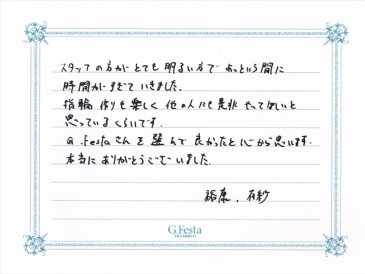 スタッフの方がとても明るい方であっという間に
時間がすぎていきました。
指輪作りも楽しく他の人にも是非やってほしいと
思っているくらいです。
G.Festaさんを選んで良かったと心から思います。
本当にありがとうございました。
裕康、有紗
G.Festa